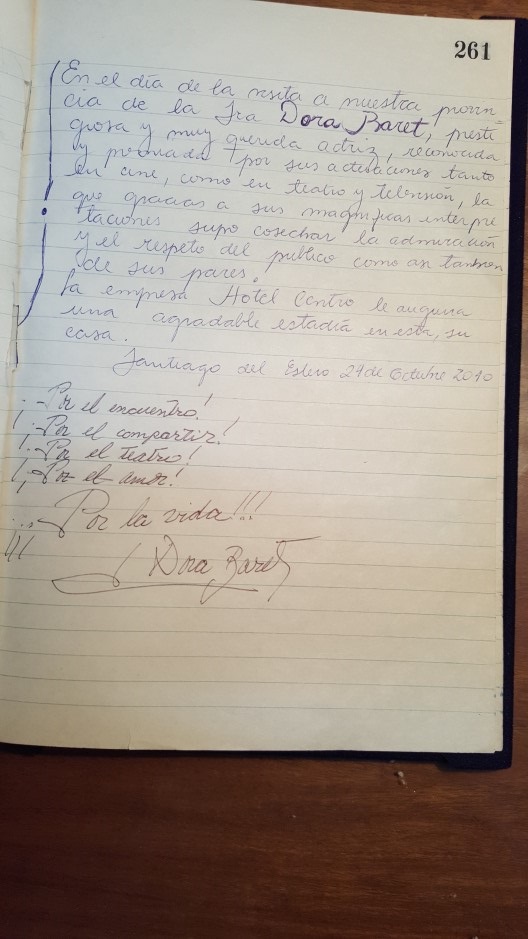 261
En el día de la visita a nuestra provin-
cia de la Sra Dora Baret, presti
giosa y muy querida actriz, reconocida
y premiada por sus actuaciones tanto
en cine, como en teatro y televisión, la
que gracias a sus magníficas interpre
taciones supo cosechar la admiración
y el respeto del publico como asi tambien
de sus pares.
La empresa Hotel Centro le augura
una agradable estadía en esta, su
casa.
Santiago del Estero 27 de Octubre 2010
¡-Por el encuentro!
¡-Por el compartir!
¡-Por el teatro!
¡-Por el amor!
¡¡¡-Por la vida!!!
Dora Baret